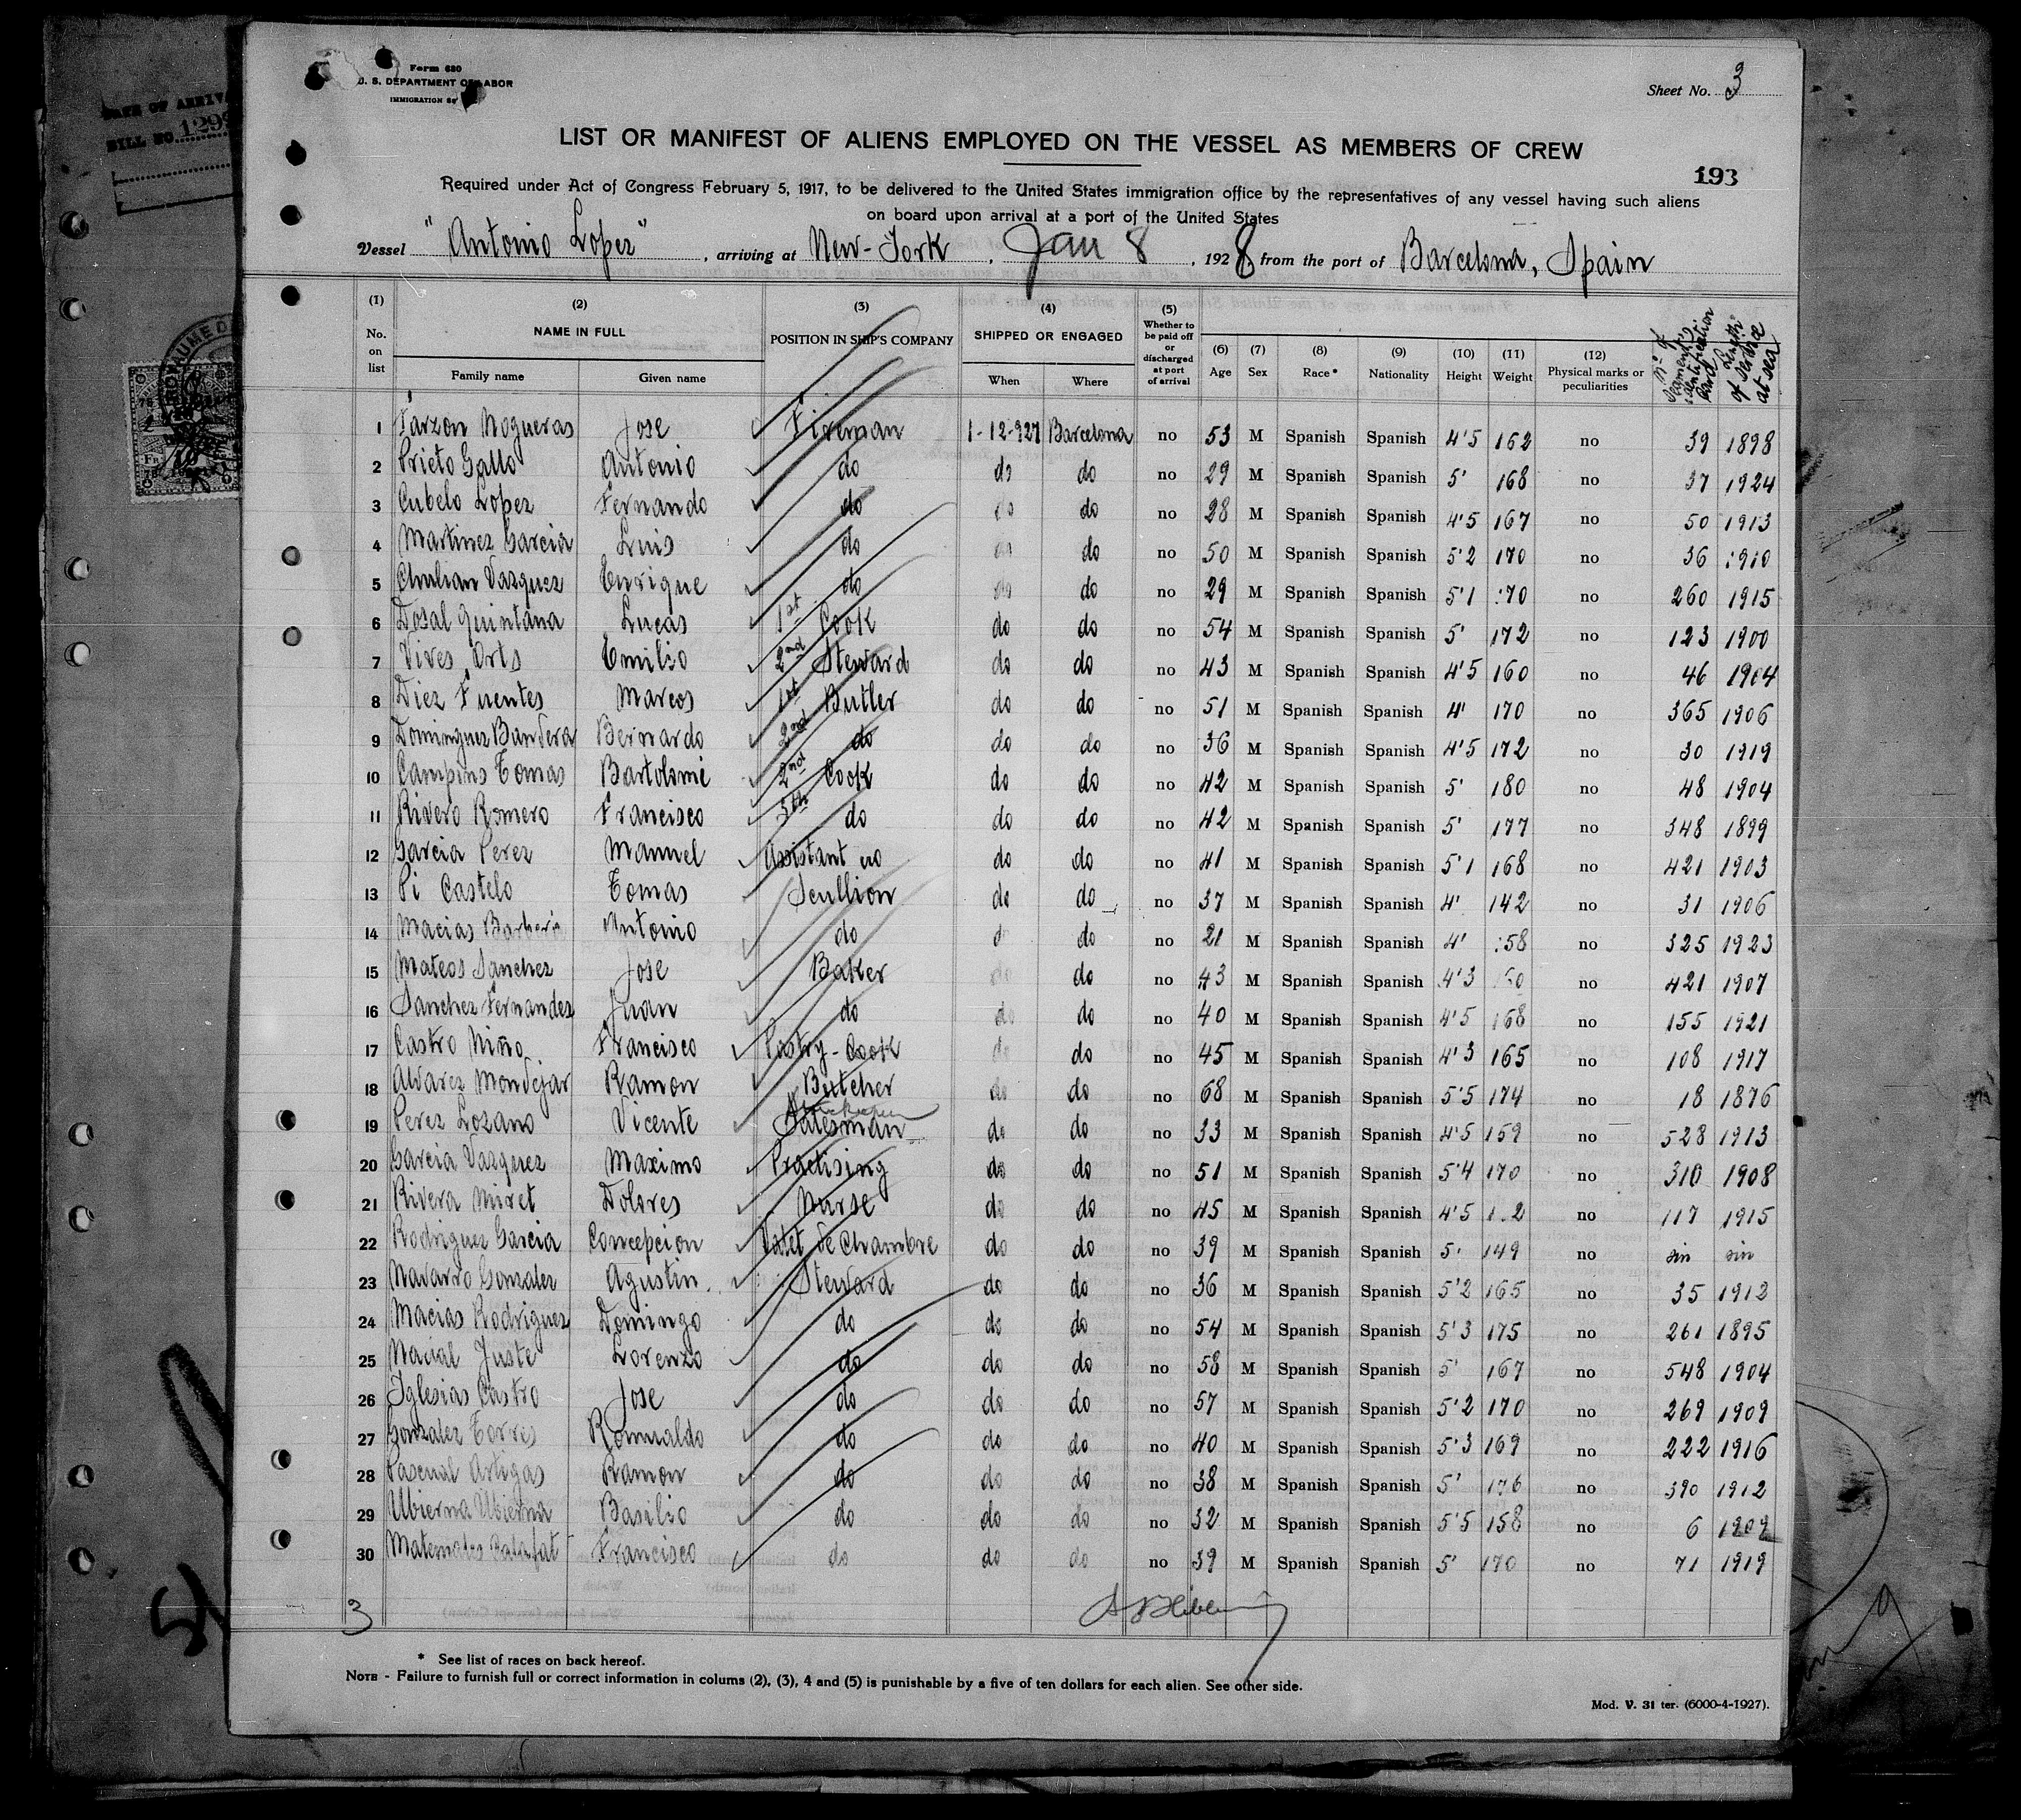 Form 680
U. S. DEPARTMENT OF LABOR
IMMIGRATION
Sheet No. 3
LIST OR MANIFEST OF ALIENS EMPLOYED ON THE VESSEL AS MEMBERS OF CREW
193
Required under Act of Congress February 5, 1917, to be delivered to the United States immigration office by the representatives of any vessel having such aliens
on board upon arrival at a port of the United States
Vessel "Antonio Lopez", arriving at New-York, Jan 8, 1928 from the port of Barcelona, Spain
(1) No. on list (2) NAME IN FULL Family name Given name (3) POSITION IN SHIP'S COMPANY (4) SHIPPED OR ENGAGED When Where (5) Whether to be paid off or discharged at port of arrival (6) Age (7) Sex (8) Race* (9) Nationality (10) Height (11) Weight (12) Physical marks or peculiarities Nº of Seaman's identification Card Length of service at sea
1 Nogueras Jose Fireman 1-12-927 Barcelona no 53 M Spanish Spanish 4'5 162 no 39 1898
2 Prieto Gallo Antonio do do do no 29 M Spanish Spanish 5' 168 no 37 1924
3 Cubelo Lopez Fernando do do do no 28 M Spanish Spanish 4'5 167 no 50 1913
4 Martinez Garcia Luis do do do no 50 M Spanish Spanish 5'2 170 no 36 1910
5 Chulian Vazquez Enrique do do do no 29 M Spanish Spanish 5'1 170 no 260 1915
6 Dosal Quintana Lucas 1st Cook do do no 54 M Spanish Spanish 5' 172 no 123 1900
7 Vives Orts Emilio 2nd Steward do do no 43 M Spanish Spanish 4'5 160 no 46 1904
8 Diez Fuentes Marcos 1st Butler do do no 51 M Spanish Spanish 4' 170 no 365 1906
9 Dominguez Bandera Bernardo 2nd do do do no 36 M Spanish Spanish 4'5 172 no 30 1919
10 Campins Tomas Bartolomé 2nd Cook do do no 42 M Spanish Spanish 5' 180 no 48 1904
11 Rivero Romero Francisco do do do no 42 M Spanish Spanish 5' 177 no 348 1899
12 Garcia Perez Manuel Assistant do do no 41 M Spanish Spanish 5'1 168 no 421 1903
13 Pi Castelo Tomas Scullion do do no 37 M Spanish Spanish 4' 142 no 31 1906
14 Macias Antonio do do do no 21 M Spanish Spanish 4' 158 no 325 1923
15 Mateos Sanchez Jose Baker do do no 43 M Spanish Spanish 4'3 no 421 1907
16 Sanchez Fernandez Juan do do do no 40 M Spanish Spanish 4'5 168 no 155 1921
17 Castro Niño Francisco Pastry-Cook do do no 45 M Spanish Spanish 4'3 165 no 108 1917
18 Alvarez Mondejar Ramon Butcher do do no 68 M Spanish Spanish 5'5 174 no 18 1876
19 Perez Lozano Vicente Salesman do do no 33 M Spanish Spanish 4'5 159 no 528 1913
20 Garcia Vazquez Maximo Practising do do no 51 M Spanish Spanish 5'4 170 no 310 1908
21 Rivera Miret Dolores Nurse do do no 45 M Spanish Spanish 4'5 no 117 1915
22 Rodriguez Garcia Concepcion Valet de Chambre do do no 39 M Spanish Spanish 5' 149 no sin sin
23 Navarro Gonzalez Agustin Steward do do no 36 M Spanish Spanish 5'2 165 no 35 1912
24 Macias Rodriguez Domingo do do do no 54 M Spanish Spanish 5'3 175 no 261 1895
25 Juste Lorenzo do do do no 58 M Spanish Spanish 5' 167 no 548 1904
26 Iglesias Castro Jose do do do no 57 M Spanish Spanish 5'2 170 no 269 1909
27 Gonzalez Torres Romualdo do do do no 40 M Spanish Spanish 5'3 169 no 222 1916
28 Pascual Artigas Ramon do do do no 38 M Spanish Spanish 5' 176 no 390 1912
29 Ubierna Ubierna Basilio do do do no 32 M Spanish Spanish 5'5 158 no 6 1909
30 Francisco do do do no 39 M Spanish Spanish 5' 170 no 71 1919
3
* See list of races on back hereof.
NOTE - Failure to furnish full or correct information in colums (2), (3), 4 and (5) is punishable by a five of ten dollars for each alien. See other side.
Mod. V. 31 ter. (6000-4-1927).